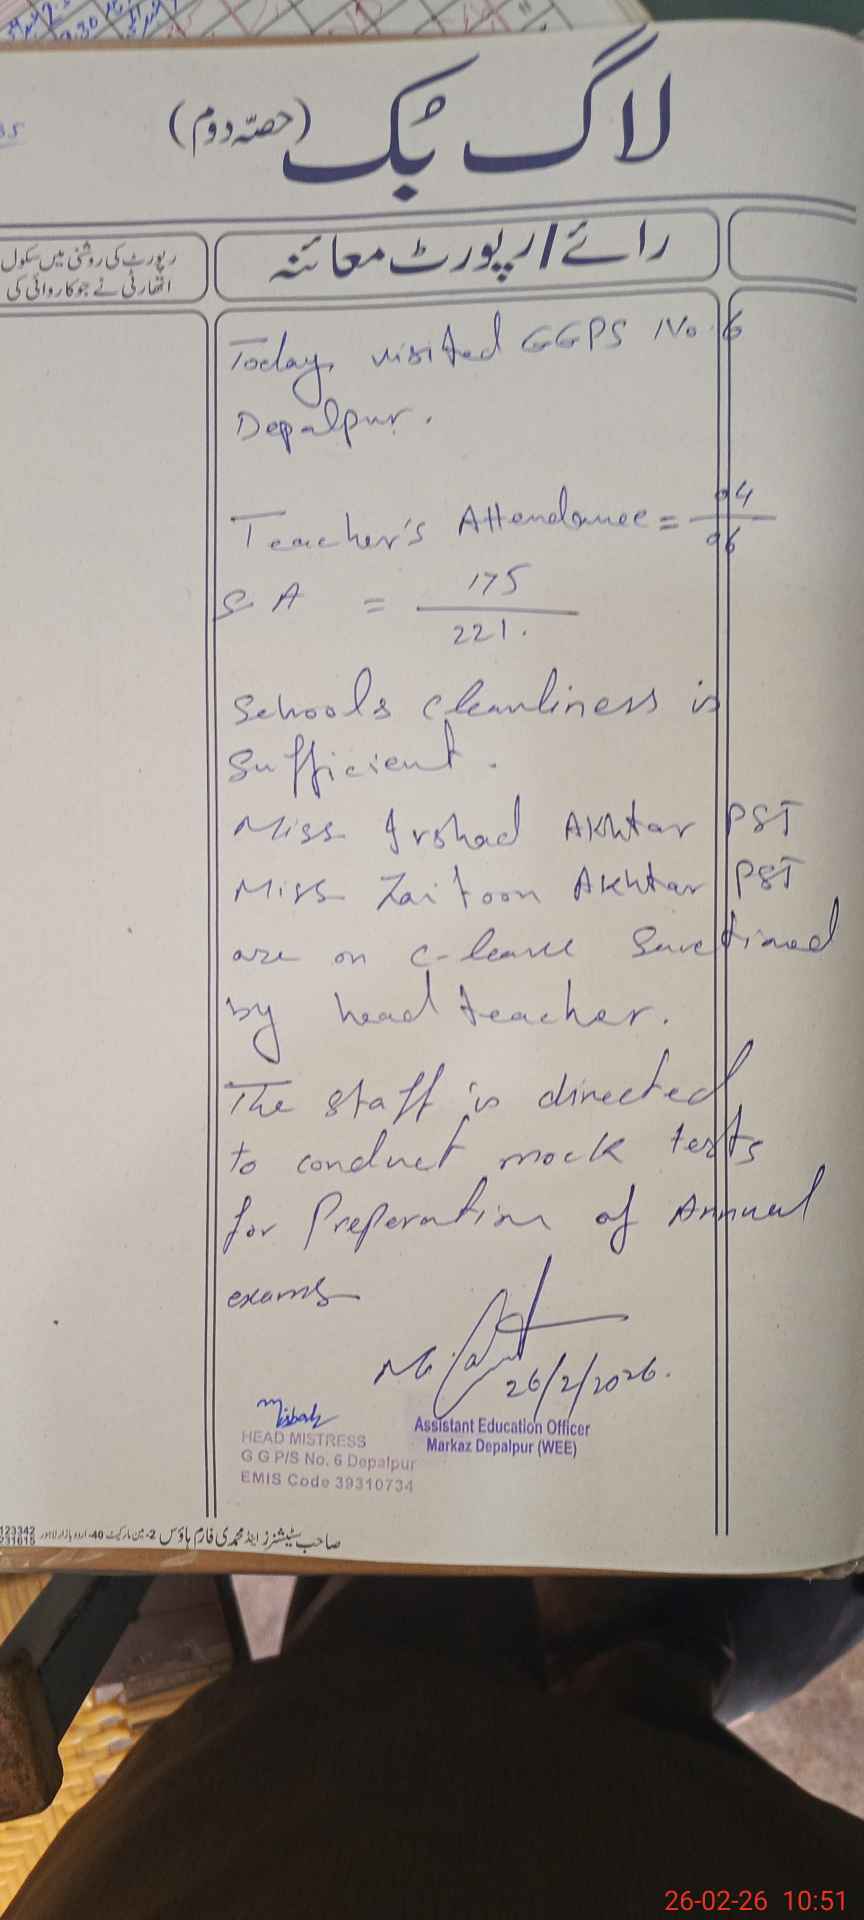 لاگ بُک (حصّہ دوم)
35
رائے/رپورٹ معائنہ
رپورٹ کی روشنی میں سکول
اتھارٹی نے جو کاروائی کی
Today, visited GGPS No. 6
Depalpur.
Teacher's Attendance = 04/06
S A = 175/221.
Schools cleanliness is
sufficient.
Miss Irshad Akhtar PST
Miss Zaitoon Akhtar PST
are on c-leave Sanctioned
by head teacher.
The staff is directed
to conduct mock tests
for Preperation of Annual
exams
26/2/2026.
Misbah
Assistant Education Officer
Markaz Depalpur (WEE)
HEAD MISTRESS
G G P/S No. 6 Depalpur
EMIS Code 39310734
صاحب سٹیشنرز اینڈ محمدی فارم ہاؤس 2-مین مارکیٹ 40-اردو بازار لاہور
123342
231615
26-02-26 10:51